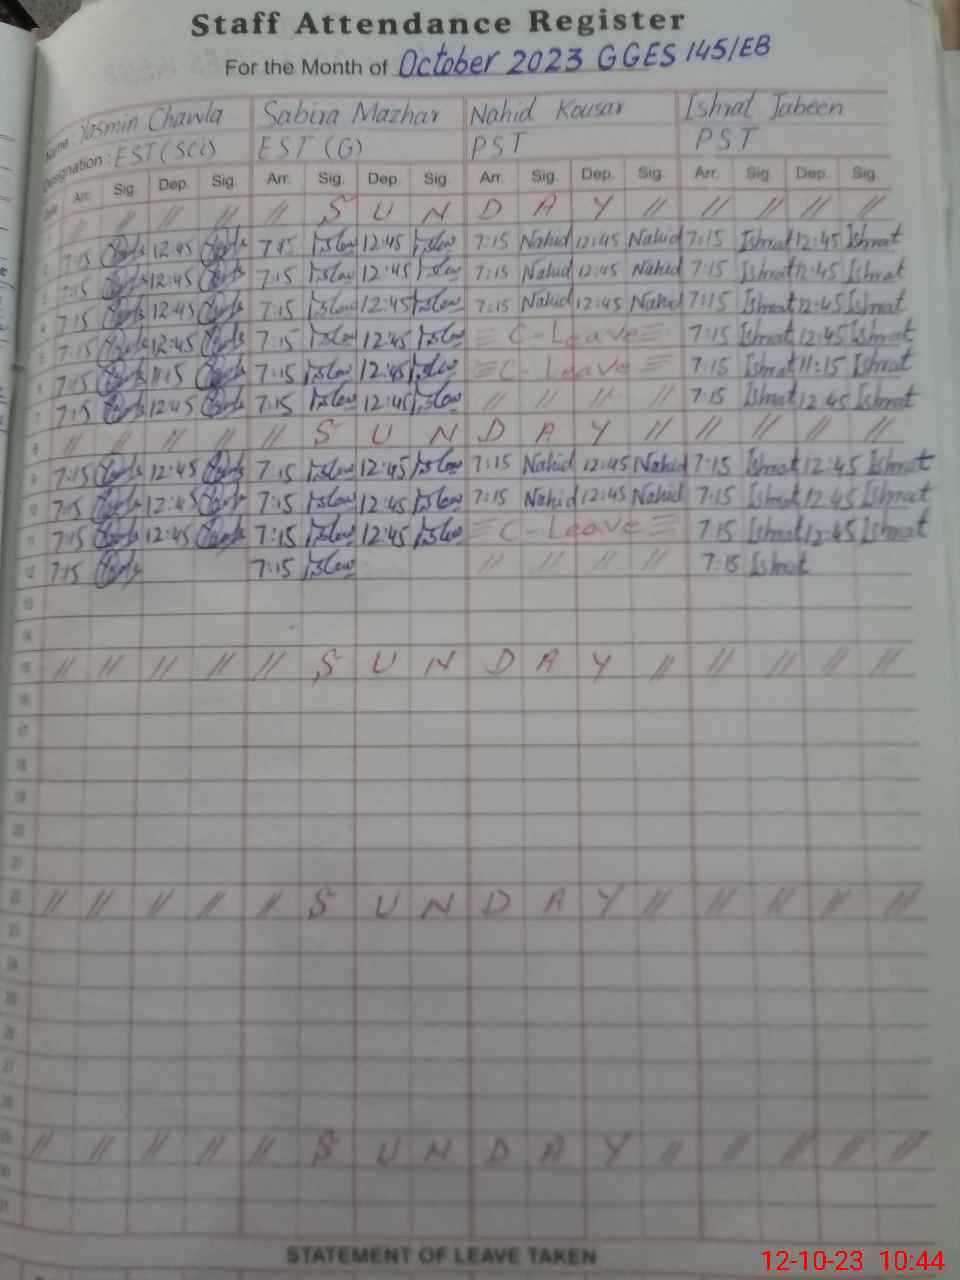 Staff Attendance Register
For the Month of October 2023 GGES 145/EB
Name: Yasmin Chawla Sabira Mazhar Nahid Kousar Ishrat Jabeen
Designation: EST(Sci) EST (G) PST PST
Date Arr. Sig. Dep. Sig. Arr. Sig. Dep. Sig. Arr. Sig. Dep. Sig. Arr. Sig Dep. Sig.
// // // // // S U N D A Y // // // // //
2 7:15 12:45 7:15 12:45 7:15 Nahid 12:45 Nahid 7:15 Ishrat 12:45 Ishrat
3 7:15 12:45 7:15 12:45 7:15 Nahid 12:45 Nahid 7:15 Ishrat 12:45 Ishrat
4 7:15 12:45 7:15 12:45 7:15 Nahid 12:45 Nahid 7:15 Ishrat 12:45 Ishrat
5 7:15 12:45 7:15 12:45 C-Leave 7:15 Ishrat 12:45 Ishrat
6 7:15 11:15 7:15 12:45 C-Leave 7:15 Ishrat 11:15 Ishrat
7 7:15 12:45 7:15 12:45 // // // // 7:15 Ishrat 12:45 Ishrat
8 // // // // // S U N D A Y // // // // //
9 7:15 12:45 7:15 12:45 7:15 Nahid 12:45 Nahid 7:15 Ishrat 12:45 Ishrat
10 7:15 12:45 7:15 12:45 7:15 Nahid 12:45 Nahid 7:15 Ishrat 12:45 Ishrat
11 7:15 12:45 7:15 12:45 C-Leave 7:15 Ishrat 12:45 Ishrat
12 7:15 7:15 // // // // 7:15 Ishrat
13
14
15 // // // // // S U N D A Y // // // // //
16
17
18
19
20
21
22 // // // // // S U N D A Y // // // // //
23
24
25
26
27
28
29 // // // // // S U N D A Y // // // // //
30
31
STATEMENT OF LEAVE TAKEN
12-10-23 10:44